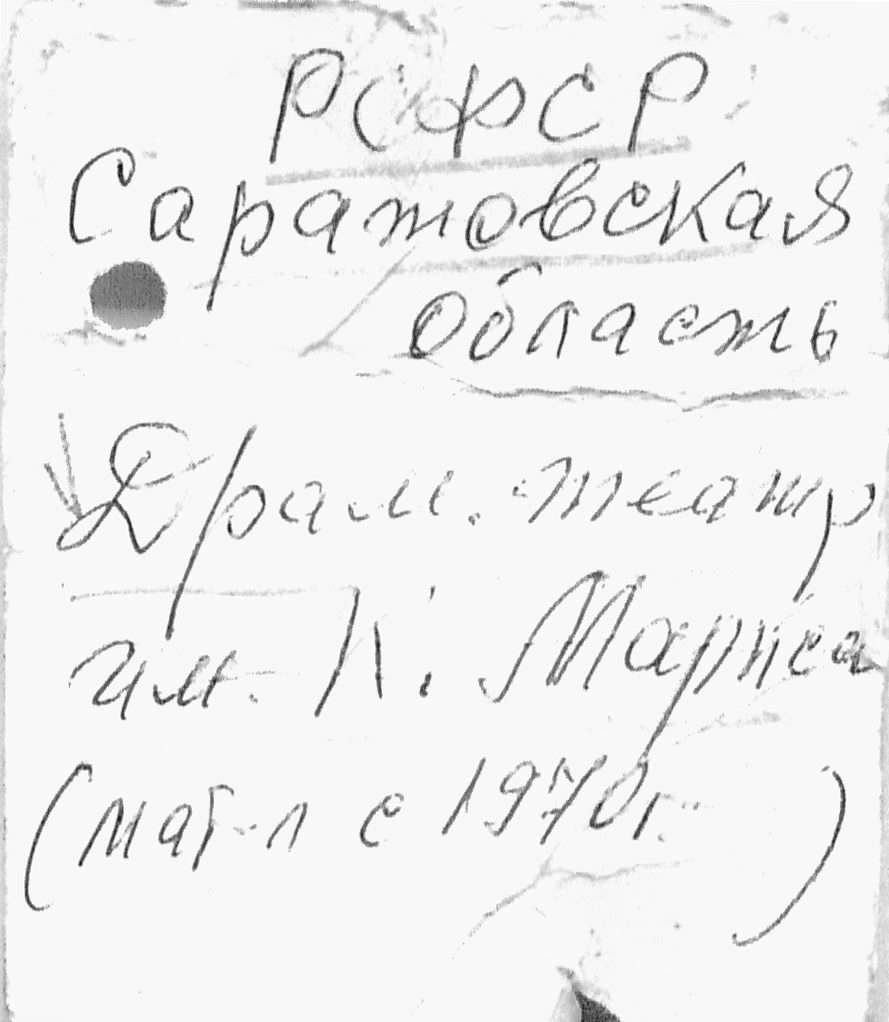 РСФСР
Саратовская
область
Драм. театр
им. К. Маркса
(мат-л с 1970г. )